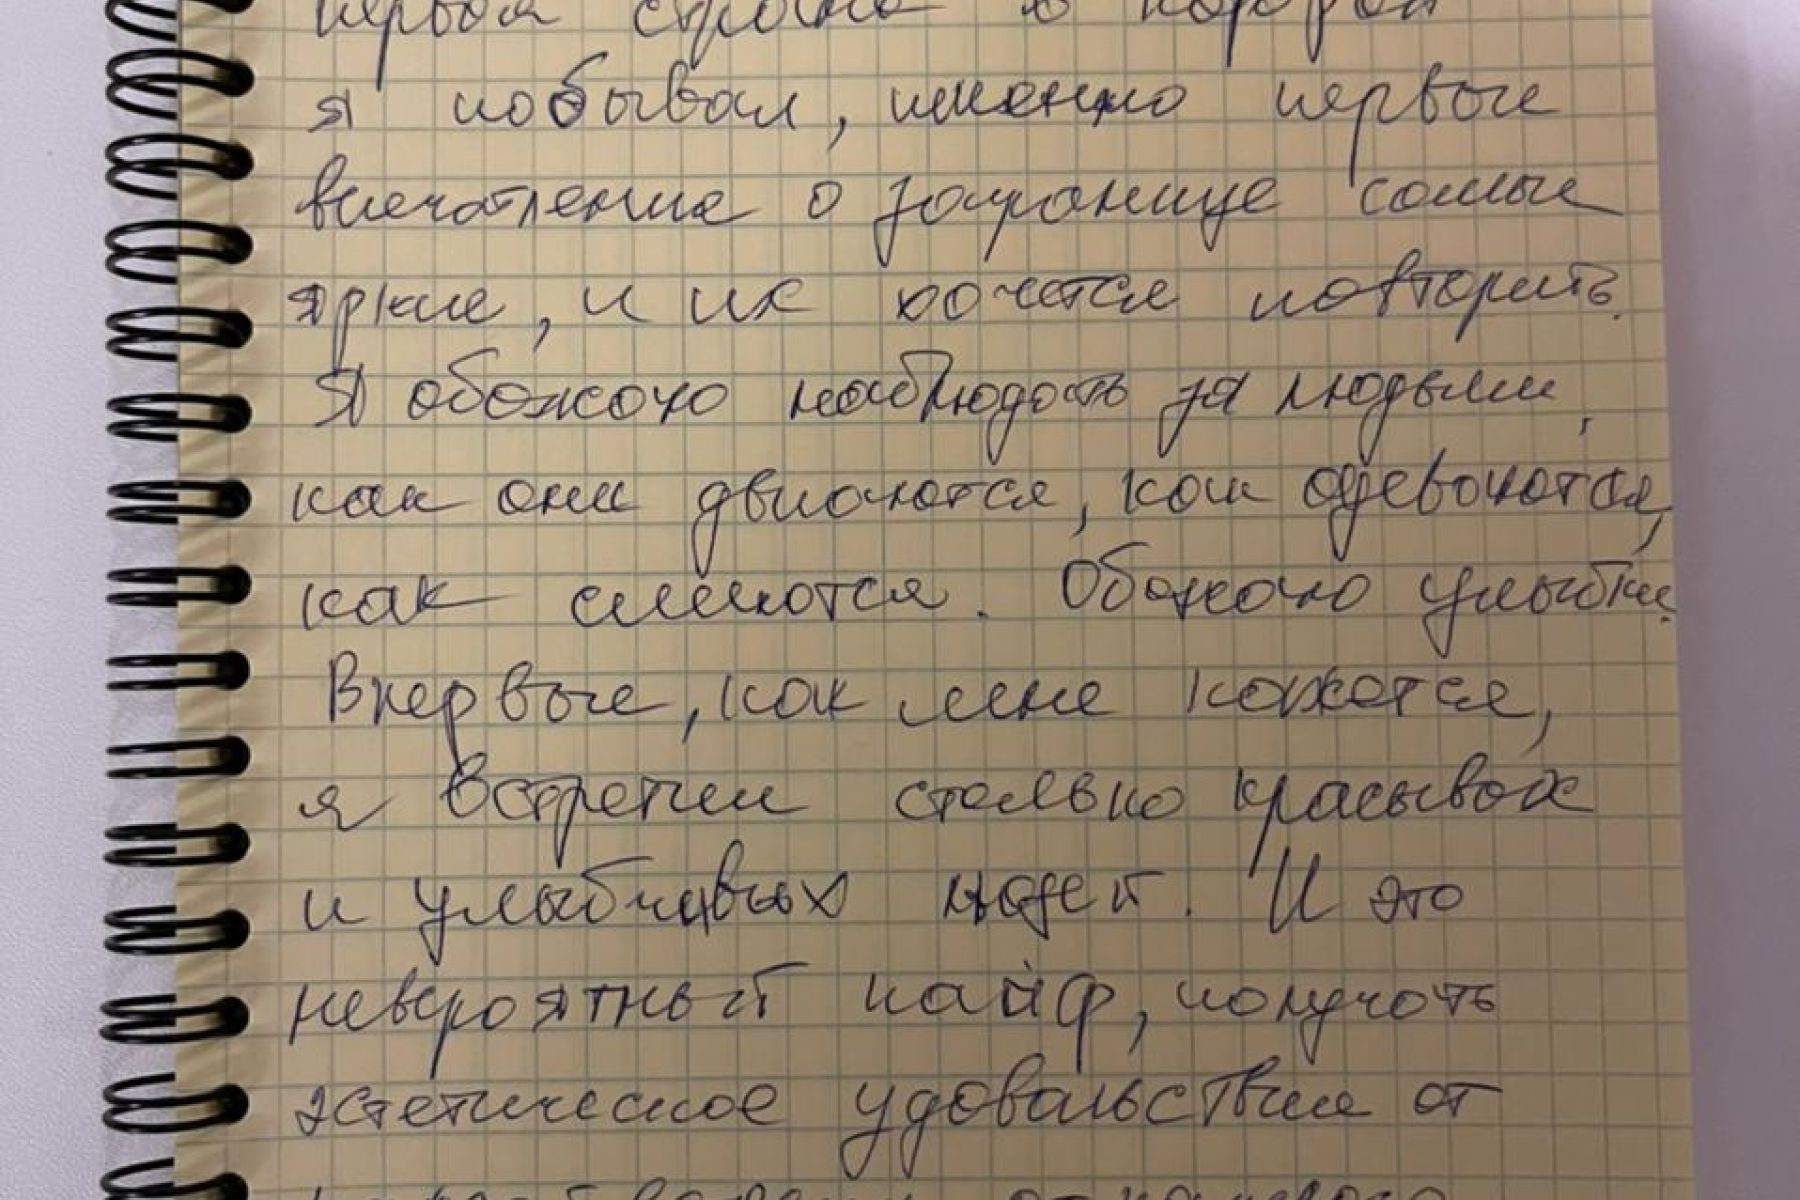 первая страна в которой
я побывал, именно первые
впечатление о загранице самые
яркие, и их хочется повторить.
Я обожаю наблюдать за людьми,
как они двигаются, как одеваются,
как смеются. Обожаю улыбки.
Впервые, как мне кажется,
я встретил столько красивых
и улыбчивых людей. И это
невероятный кайф, получать
эстетическое удовольствие от